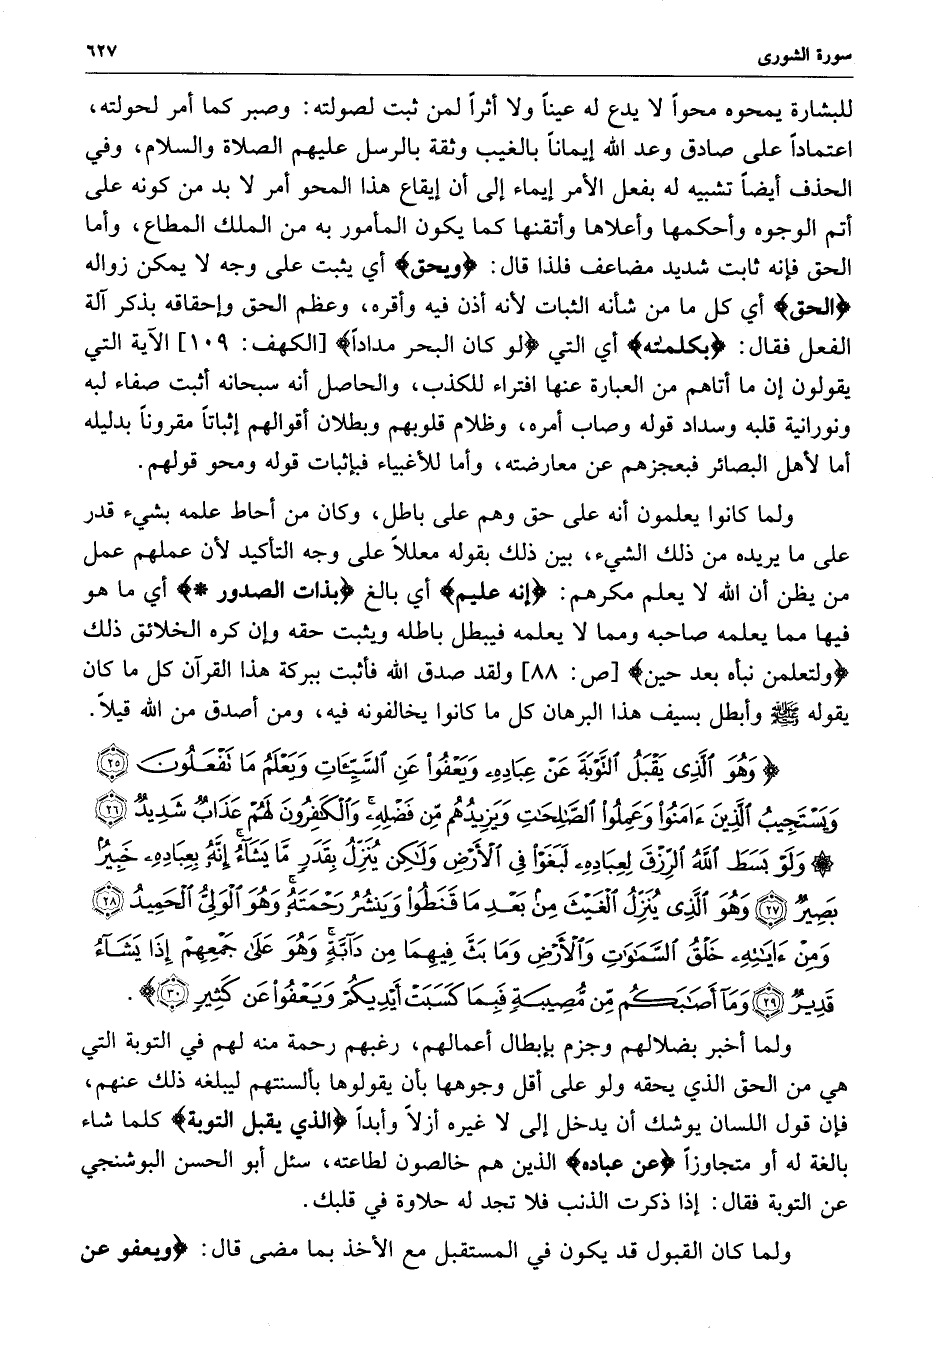 سورة الشورى ٦٢٧
للبشارة يمحوه محواً لا يدع له عيناً ولا أثراً لمن ثبت لصولته: وصبر كما أمر لحولته،
اعتماداً على صادق وعد الله إيماناً بالغيب وثقة بالرسل عليهم الصلاة والسلام، وفي
الحذف أيضاً تشبيه له بفعل الأمر إيماء إلى أن إيقاع هذا المحو أمر لا بد من كونه على
أتم الوجوه وأحكمها وأعلاها وأتقنها كما يكون المأمور به من الملك المطاع، وأما
الحق فإنه ثابت شديد مضاعف فلذا قال: ﴿ويحق﴾ أي يثبت على وجه لا يمكن زواله
﴿الحق﴾ أي كل ما من شأنه الثبات لأنه أذن فيه وأقره، وعظم الحق وإحقاقه بذكر آلة
الفعل فقال: ﴿بكلمٰته﴾ أي التي ﴿لو كان البحر مداداً﴾ [الكهف: ١٠٩] الآية التي
يقولون إن ما أتاهم من العبارة عنها افتراء للكذب، والحاصل أنه سبحانه أثبت صفاء لبه
ونورانية قلبه وسداد قوله وصاب أمره، وظلام قلوبهم وبطلان أقوالهم إثباتاً مقروناً بدليله
أما لأهل البصائر فبعجزهم عن معارضته، وأما للأغبياء فبإثبات قوله ومحو قولهم.
ولما كانوا يعلمون أنه على حق وهم على باطل، وكان من أحاط علمه بشيء قدر
على ما يريده من ذلك الشيء، بين ذلك بقوله معللاً على وجه التأكيد لأن عملهم عمل
من يظن أن الله لا يعلم مكرهم: ﴿إنه عليم﴾ أي بالغ ﴿بذات الصدور *﴾ أي ما هو
فيها مما يعلمه صاحبه ومما لا يعلمه فيبطل باطله ويثبت حقه وإن كره الخلائق ذلك
﴿ولتعلمن نبأه بعد حين﴾ [ص: ٨٨] ولقد صدق الله فأثبت ببركة هذا القرآن كل ما كان
يقوله ﷺ وأبطل بسيف هذا البرهان كل ما كانوا يخالفونه فيه، ومن أصدق من الله قيلاً.
﴿وَهُوَ ٱلَّذِى يَقْبَلُ ٱلتَّوْبَةَ عَنْ عِبَادِهِۦ وَيَعْفُوا۟ عَنِ ٱلسَّيِّـَٔاتِ وَيَعْلَمُ مَا نَفْعَلُونَ ۝٢٥
وَيَسْتَجِيبُ ٱلَّذِينَ ءَامَنُوا۟ وَعَمِلُوا۟ ٱلصَّـٰلِحَـٰتِ وَيَزِيدُهُم مِّن فَضْلِهِۦ ۚ وَٱلْكَـٰفِرُونَ لَهُمْ عَذَابٌ شَدِيدٌ ۝٢٦
۞ وَلَوْ بَسَطَ ٱللَّهُ ٱلرِّزْقَ لِعِبَادِهِۦ لَبَغَوْا۟ فِى ٱلْأَرْضِ وَلَـٰكِن يُنَزِّلُ بِقَدَرٍ مَّا يَشَآءُ ۚ إِنَّهُۥ بِعِبَادِهِۦ خَبِيرٌۢ
بَصِيرٌ ۝٢٧ وَهُوَ ٱلَّذِى يُنَزِّلُ ٱلْغَيْثَ مِنۢ بَعْدِ مَا قَنَطُوا۟ وَيَنشُرُ رَحْمَتَهُۥ ۚ وَهُوَ ٱلْوَلِىُّ ٱلْحَمِيدُ ۝٢٨
وَمِنْ ءَايَـٰتِهِۦ خَلْقُ ٱلسَّمَـٰوَٰتِ وَٱلْأَرْضِ وَمَا بَثَّ فِيهِمَا مِن دَآبَّةٍ ۚ وَهُوَ عَلَىٰ جَمْعِهِمْ إِذَا يَشَآءُ
قَدِيرٌ ۝٢٩ وَمَآ أَصَـٰبَكُم مِّن مُّصِيبَةٍ فَبِمَا كَسَبَتْ أَيْدِيكُمْ وَيَعْفُوا۟ عَن كَثِيرٍ ۝٣٠﴾.
ولما أخبر بضلالهم وجزم بإبطال أعمالهم، رغبهم رحمة منه لهم في التوبة التي
هي من الحق الذي يحقه ولو على أقل وجوهها بأن يقولوها بألسنتهم ليبلغه ذلك عنهم،
فإن قول اللسان يوشك أن يدخل إلى لا غيره أزلاً وأبداً ﴿الذي يقبل التوبة﴾ كلما شاء
بالغة له أو متجاوزاً ﴿عن عباده﴾ الذين هم خالصون لطاعته، سئل أبو الحسن البوشنجي
عن التوبة فقال: إذا ذكرت الذنب فلا تجد له حلاوة في قلبك.
ولما كان القبول قد يكون في المستقبل مع الأخذ بما مضى قال: ﴿ويعفو عن